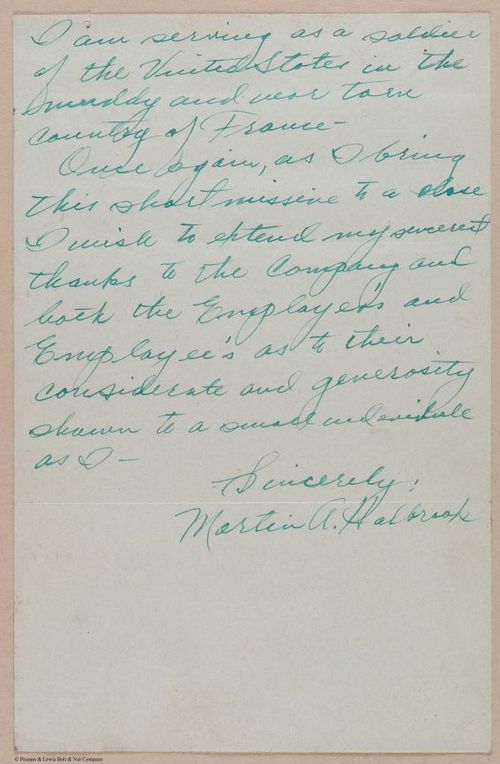 I am serving as a soldier
of the United States in the
muddy and wor torn
country of France-
Once again, as I bring
this short missive to a close
I wish to extend my sincerest
thanks to the Company and
both the Employer's and
Employee's as to their
considerate and generosity
shown to a small indevidule
as I -
Sincerely,
Martin A. Halbrook
© Pheoll & Lewis Bolt & Nut Company